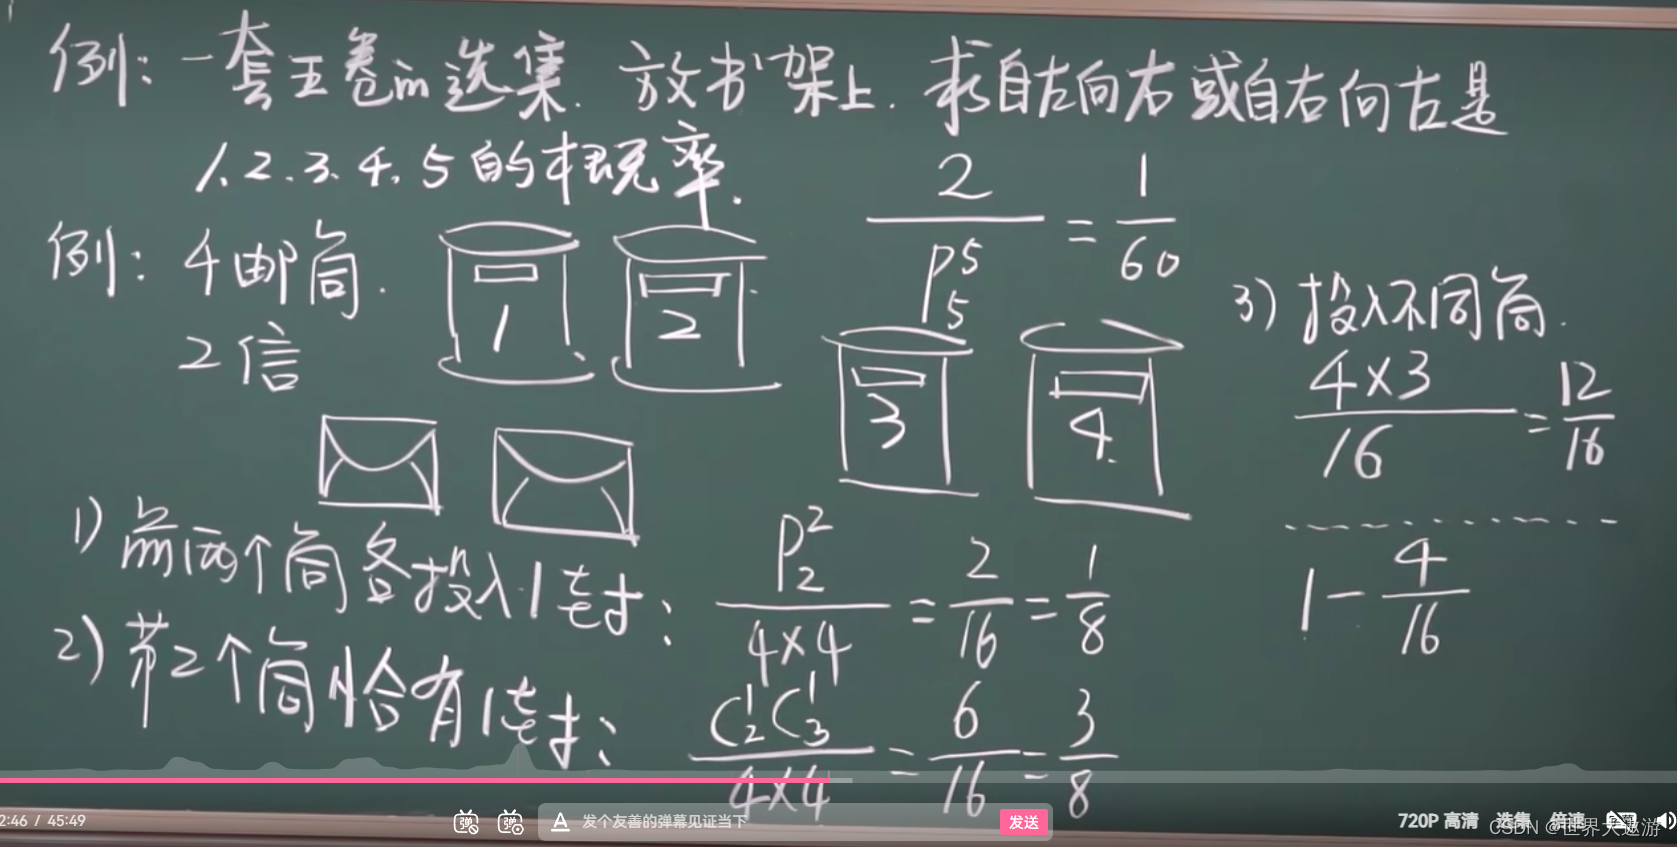 例：一套五卷的选集．放书架上．求自左向右或自右向左是
1.2.3.4.5的概率．
2/P₅⁵ = 1/60
例：4邮筒．
2信
1
2
3
4
1) 前两个筒各投入1封：P₂²/4×4 = 2/16 = 1/8
2) 第2个筒恰有1封：C₂¹C₃¹/4×4 = 6/16 = 3/8
3) 投入不同筒．
4×3/16 = 12/16
1 - 4/16
2:46 / 45:49
弹
弹
A 发个友善的弹幕见证当下
发送
720P 高清
选集
倍速
CSDN @世界大遨游